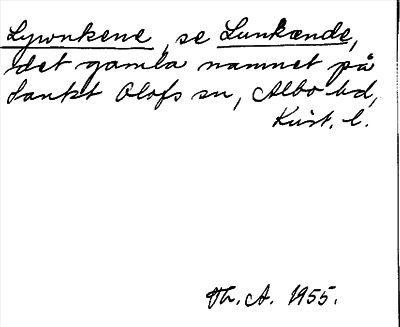 Lywnkene, se Lunkænde,
det gamla namnet på
Sankt Olofs sn, Albo hd,
Krist. l.
Th. A. 1955.